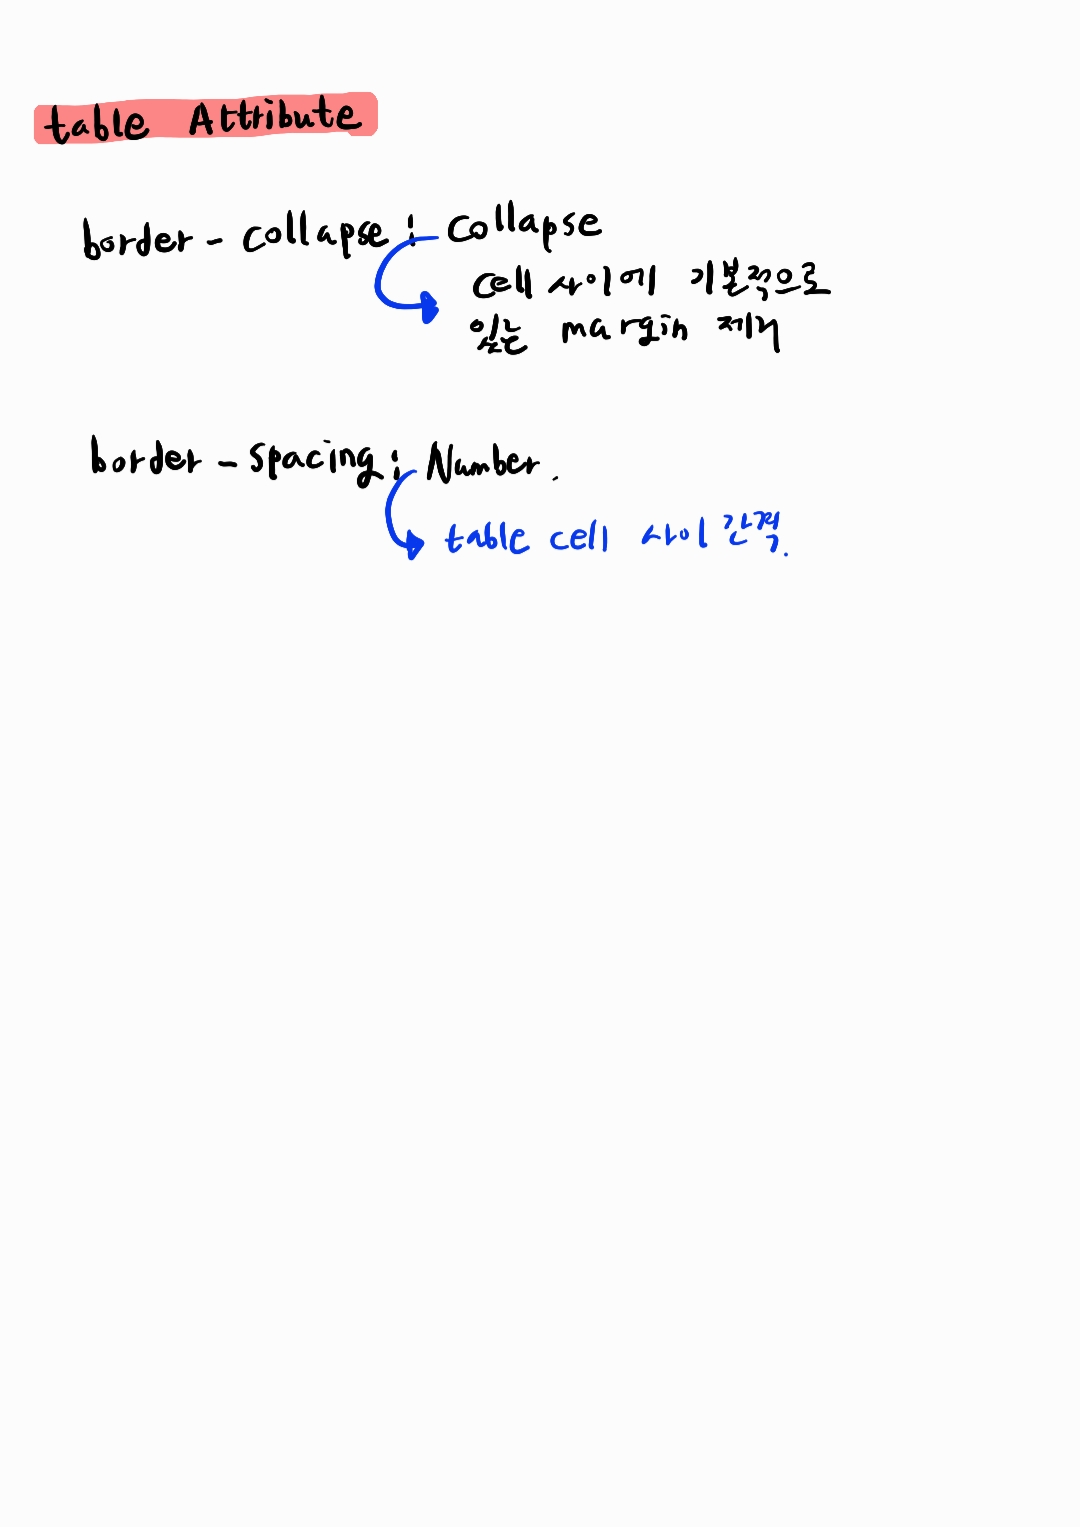 table Attribute
border - collapse : collapse
cell 사이에 기본적으로
있는 margin 제거
border - spacing : Number.
table cell 사이 간격.